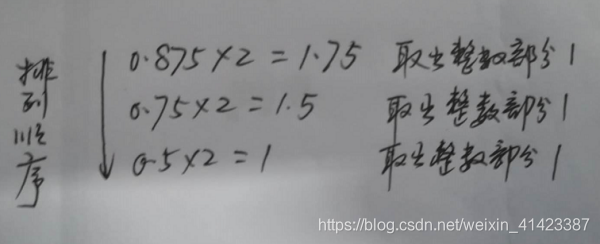 排列顺序
0.875×2=1.75 取出整数部分1
0.75×2=1.5 取出整数部分1
0.5×2=1 取出整数部分1
https://blog.csdn.net/weixin_41423387